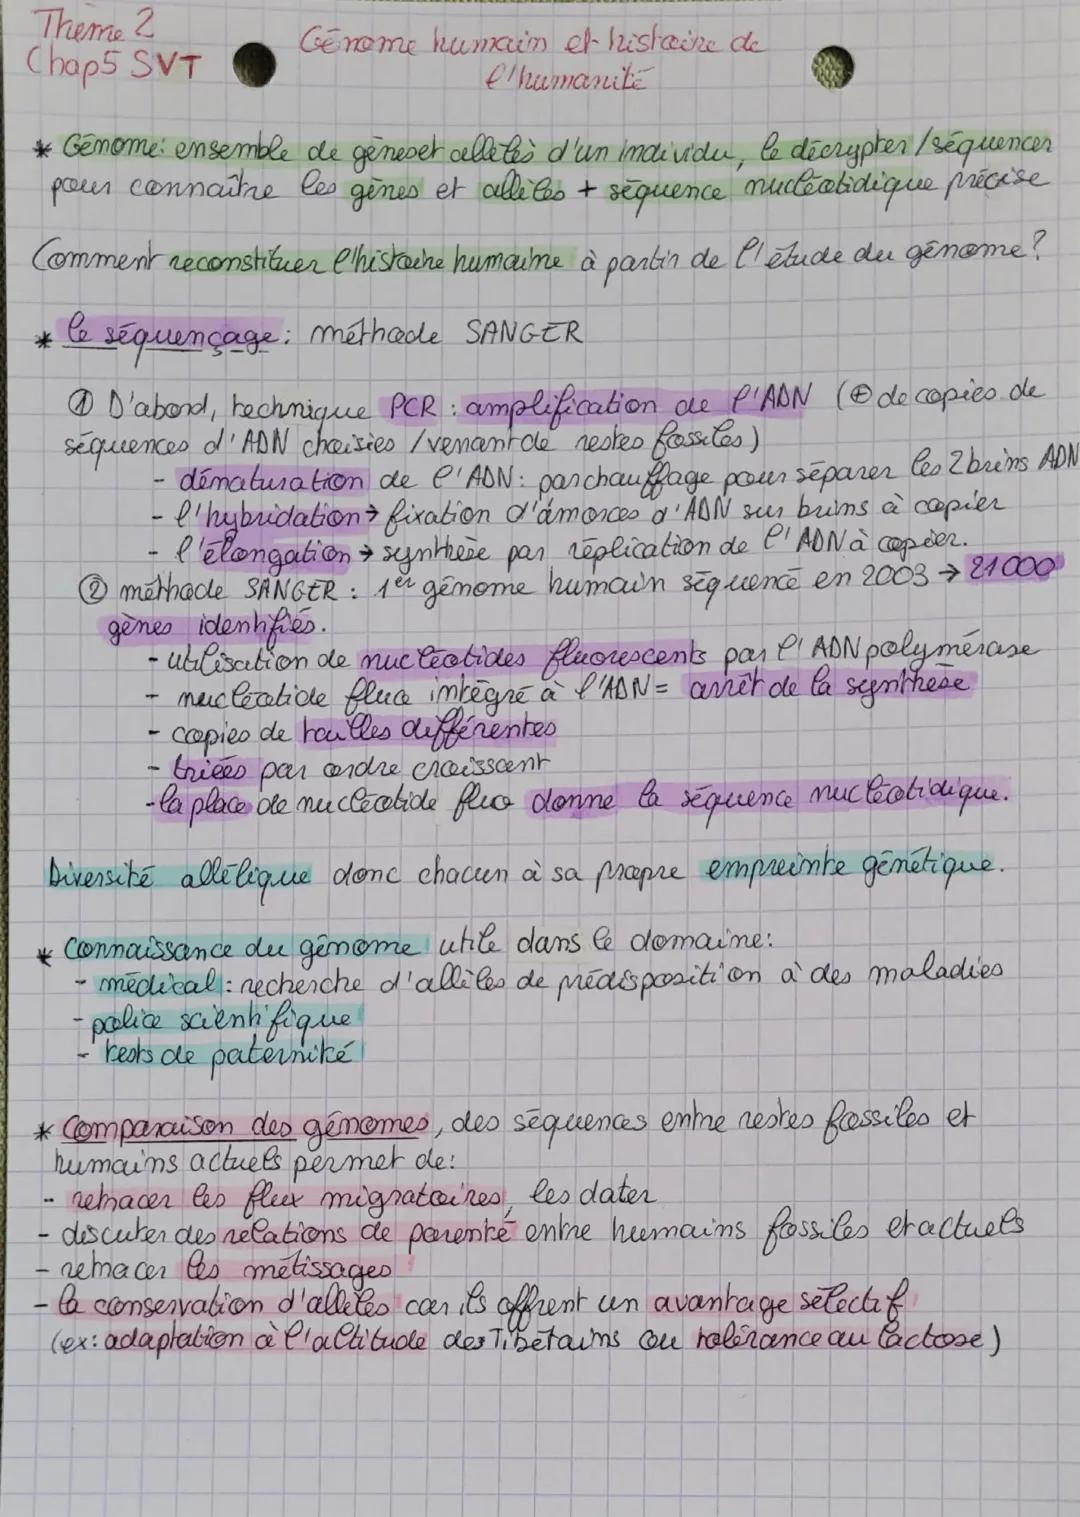 Thème 2
Chap5 SVT
Génome humain et histoire de
l'humanité
* Génome: ensemble de gènes et allèles d'un individu, le décrypter / séquencer
pour connaître les gènes et allèles + séquence nucléotidique précise
Comment reconstituer l'histoire humaine à partir de l'étude du génome?
* le séquençage: méthode SANGER
① D'abord, technique PCR: amplification de l'ADN (⊕ de copies de
séquences d'ADN choisies / venant de restes fossiles)
- dénaturation de l'ADN: par chauffage pour séparer les 2 brins ADN
- l'hybridation → fixation d'amorces d'ADN sur brins à copier
- l'élongation → synthèse par réplication de l'ADN à copier.
② méthode SANGER: 1er génome humain séquencé en 2003 → 21000
gènes identifiés.
- utilisation de nucléotides fluorescents par l'ADN polymérase
- nucléotide fluo intégré à l'ADN = arrêt de la synthèse
- copies de tailles différentes
- triées par ordre croissant
- la place de nucléotide fluo donne la séquence nucléotidique.
Diversité allélique donc chacun à sa propre empreinte génétique.
* Connaissance du génome utile dans le domaine:
- médical: recherche d'allèles de prédisposition à des maladies
- police scientifique
- tests de paternité
* Comparaison des génomes, des séquences entre restes fossiles et
humains actuels permet de:
- retracer les flux migratoires, les dater
- discuter des relations de parenté entre humains fossiles et actuels
- retracer les métissages
- la conservation d'allèles car ils offrent un avantage sélectif
(ex: adaptation à l'altitude des Tibétains ou tolérance au lactose)